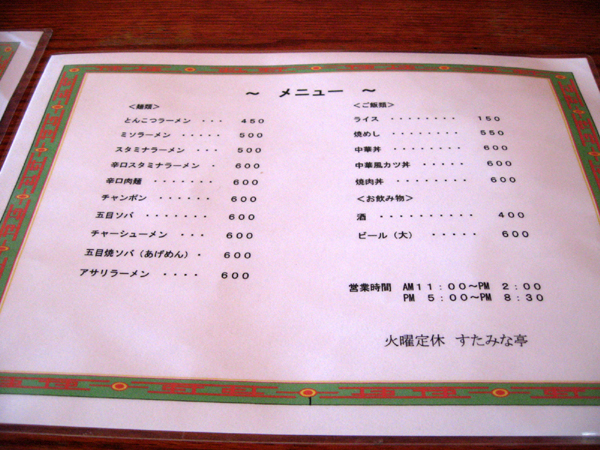 ～ メニュー ～
＜麺類＞
とんこつラーメン ・・・ 450
ミソラーメン ・・・・・ 500
スタミナラーメン ・・・ 500
辛口スタミナラーメン ・ 600
辛口肉麺 ・・・・・・・ 600
チャンポン ・・・・・・ 600
五目ソバ ・・・・・・・ 600
チャーシューメン ・・・ 600
五目焼ソバ（あげめん）・ 600
アサリラーメン ・・・・ 600
＜ご飯類＞
ライス ・・・・・・・・ 150
焼めし ・・・・・・・・ 550
中華丼 ・・・・・・・・ 600
中華風カツ丼 ・・・・・ 600
焼肉丼 ・・・・・・・・ 600
＜お飲み物＞
酒 ・・・・・・・・・・ 400
ビール（大） ・・・・・ 600
営業時間 AM11：00～PM 2：00
PM 5：00～PM 8：30
火曜定休 すたみな亭